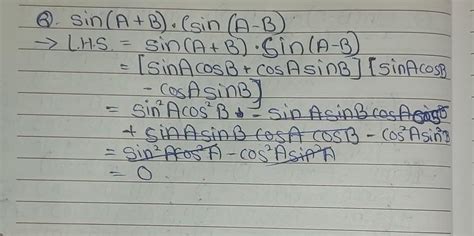 Q. sin(A+B)·(sin(A-B)
→ L.H.S. = sin(A+B)·Sin(A-B)
= [sinAcosB + cosAsinB] [sinAcosB
- cosAsinB]
= sin²Acos²B - sinAsinBcosAcosB
+ sinAsinB cosA cosB - cos²Asin²B
= sin²Acos²A - cos²Asin²A
= 0